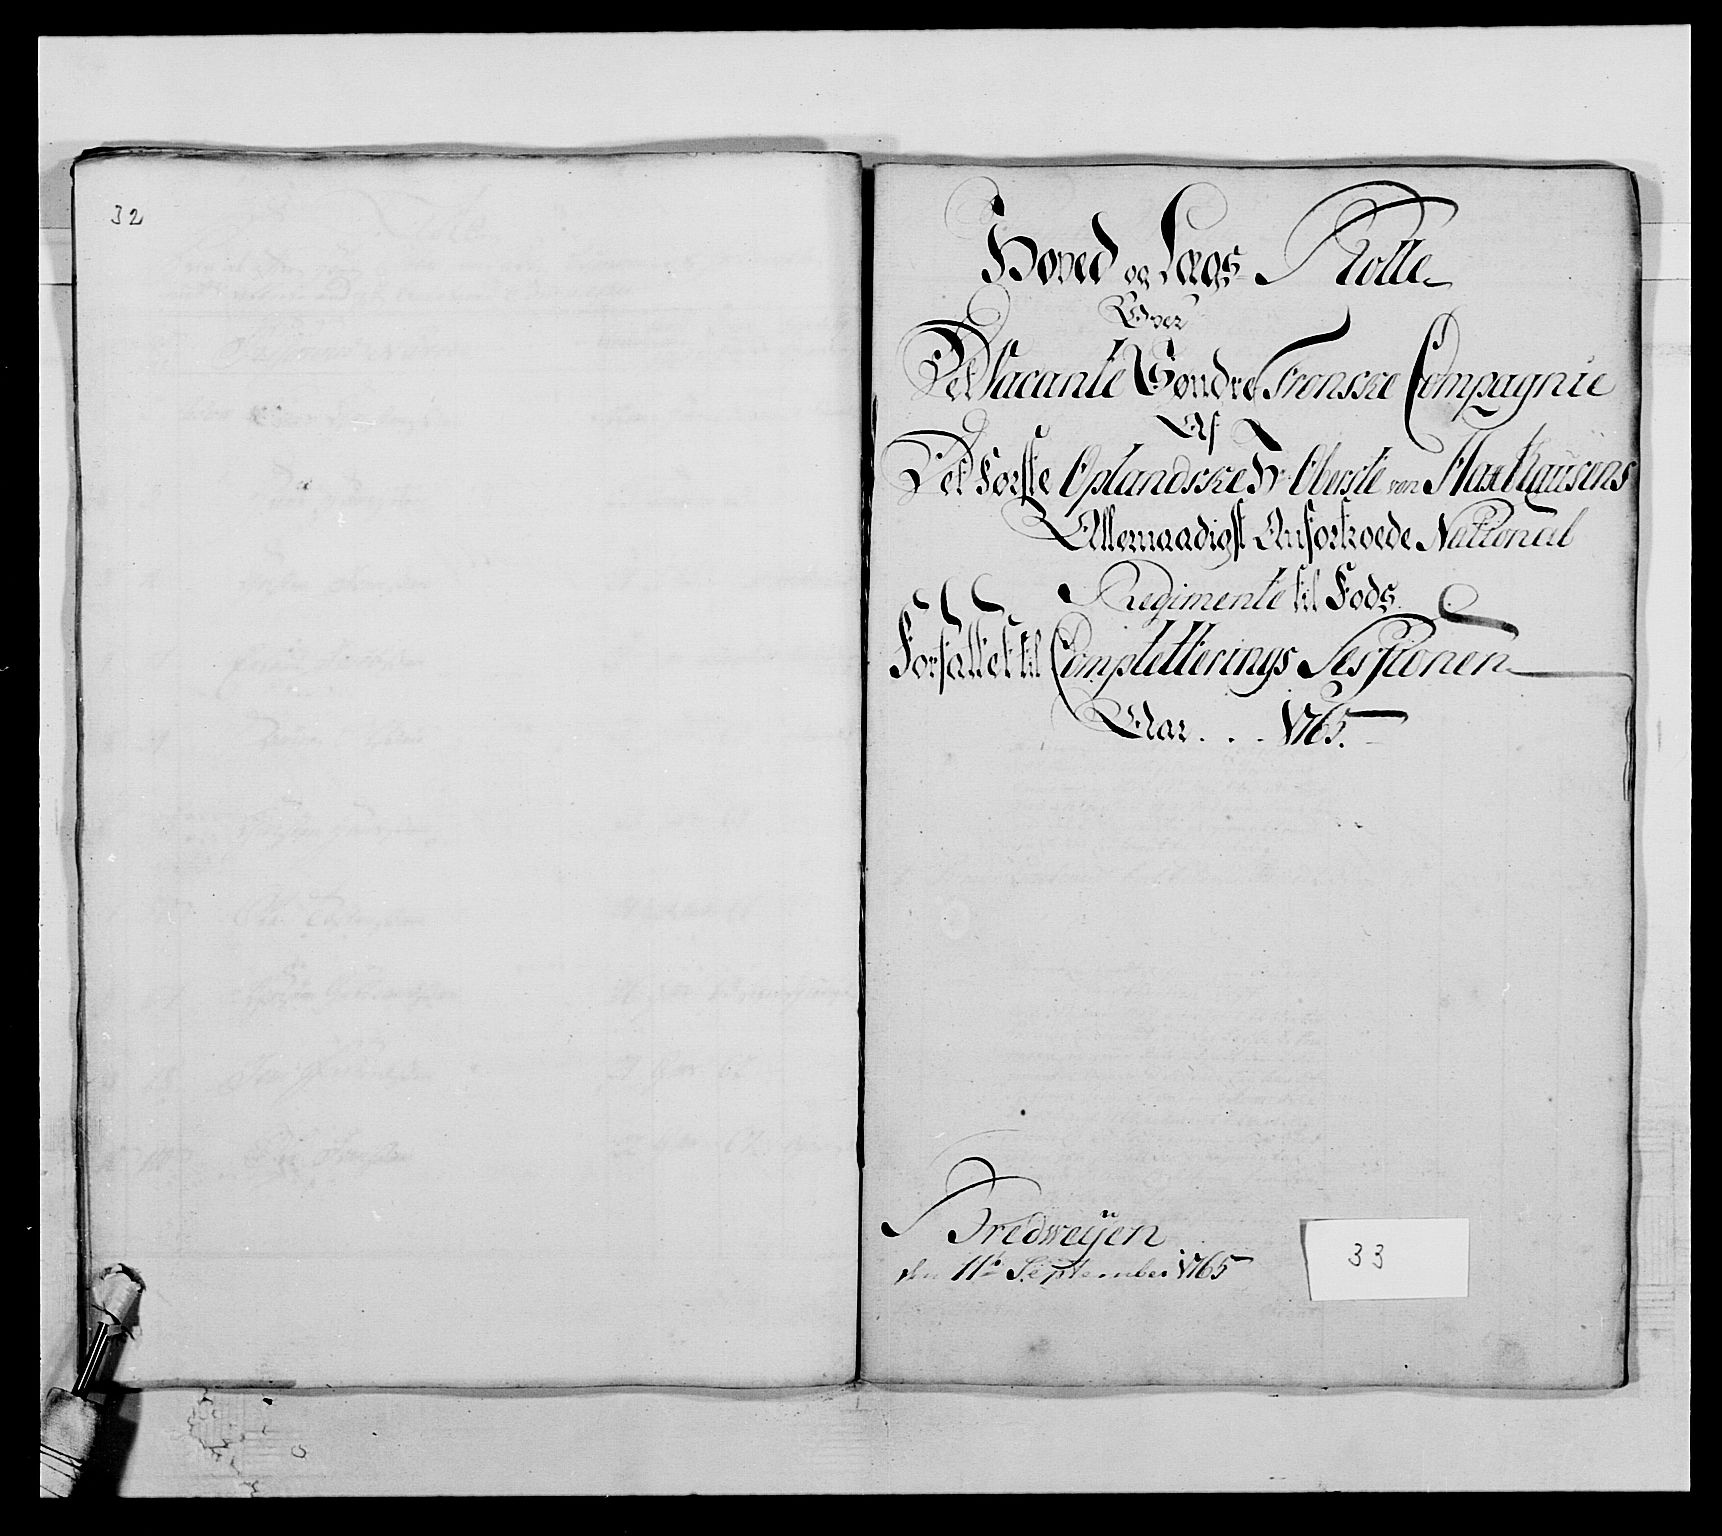 32
Hoved og Lægs Rolle
Over
Det Vacante Søndre Fronske Compagnie
Af
Det Første Oplandske Hr Oberste von Haxthausens
Allernaadigst Anfortroede National
Regimente til Fods.
Forfattet til Completterings Sessionen
Aar . . . 1765.
Bredweÿen
den 11te September 1765
33